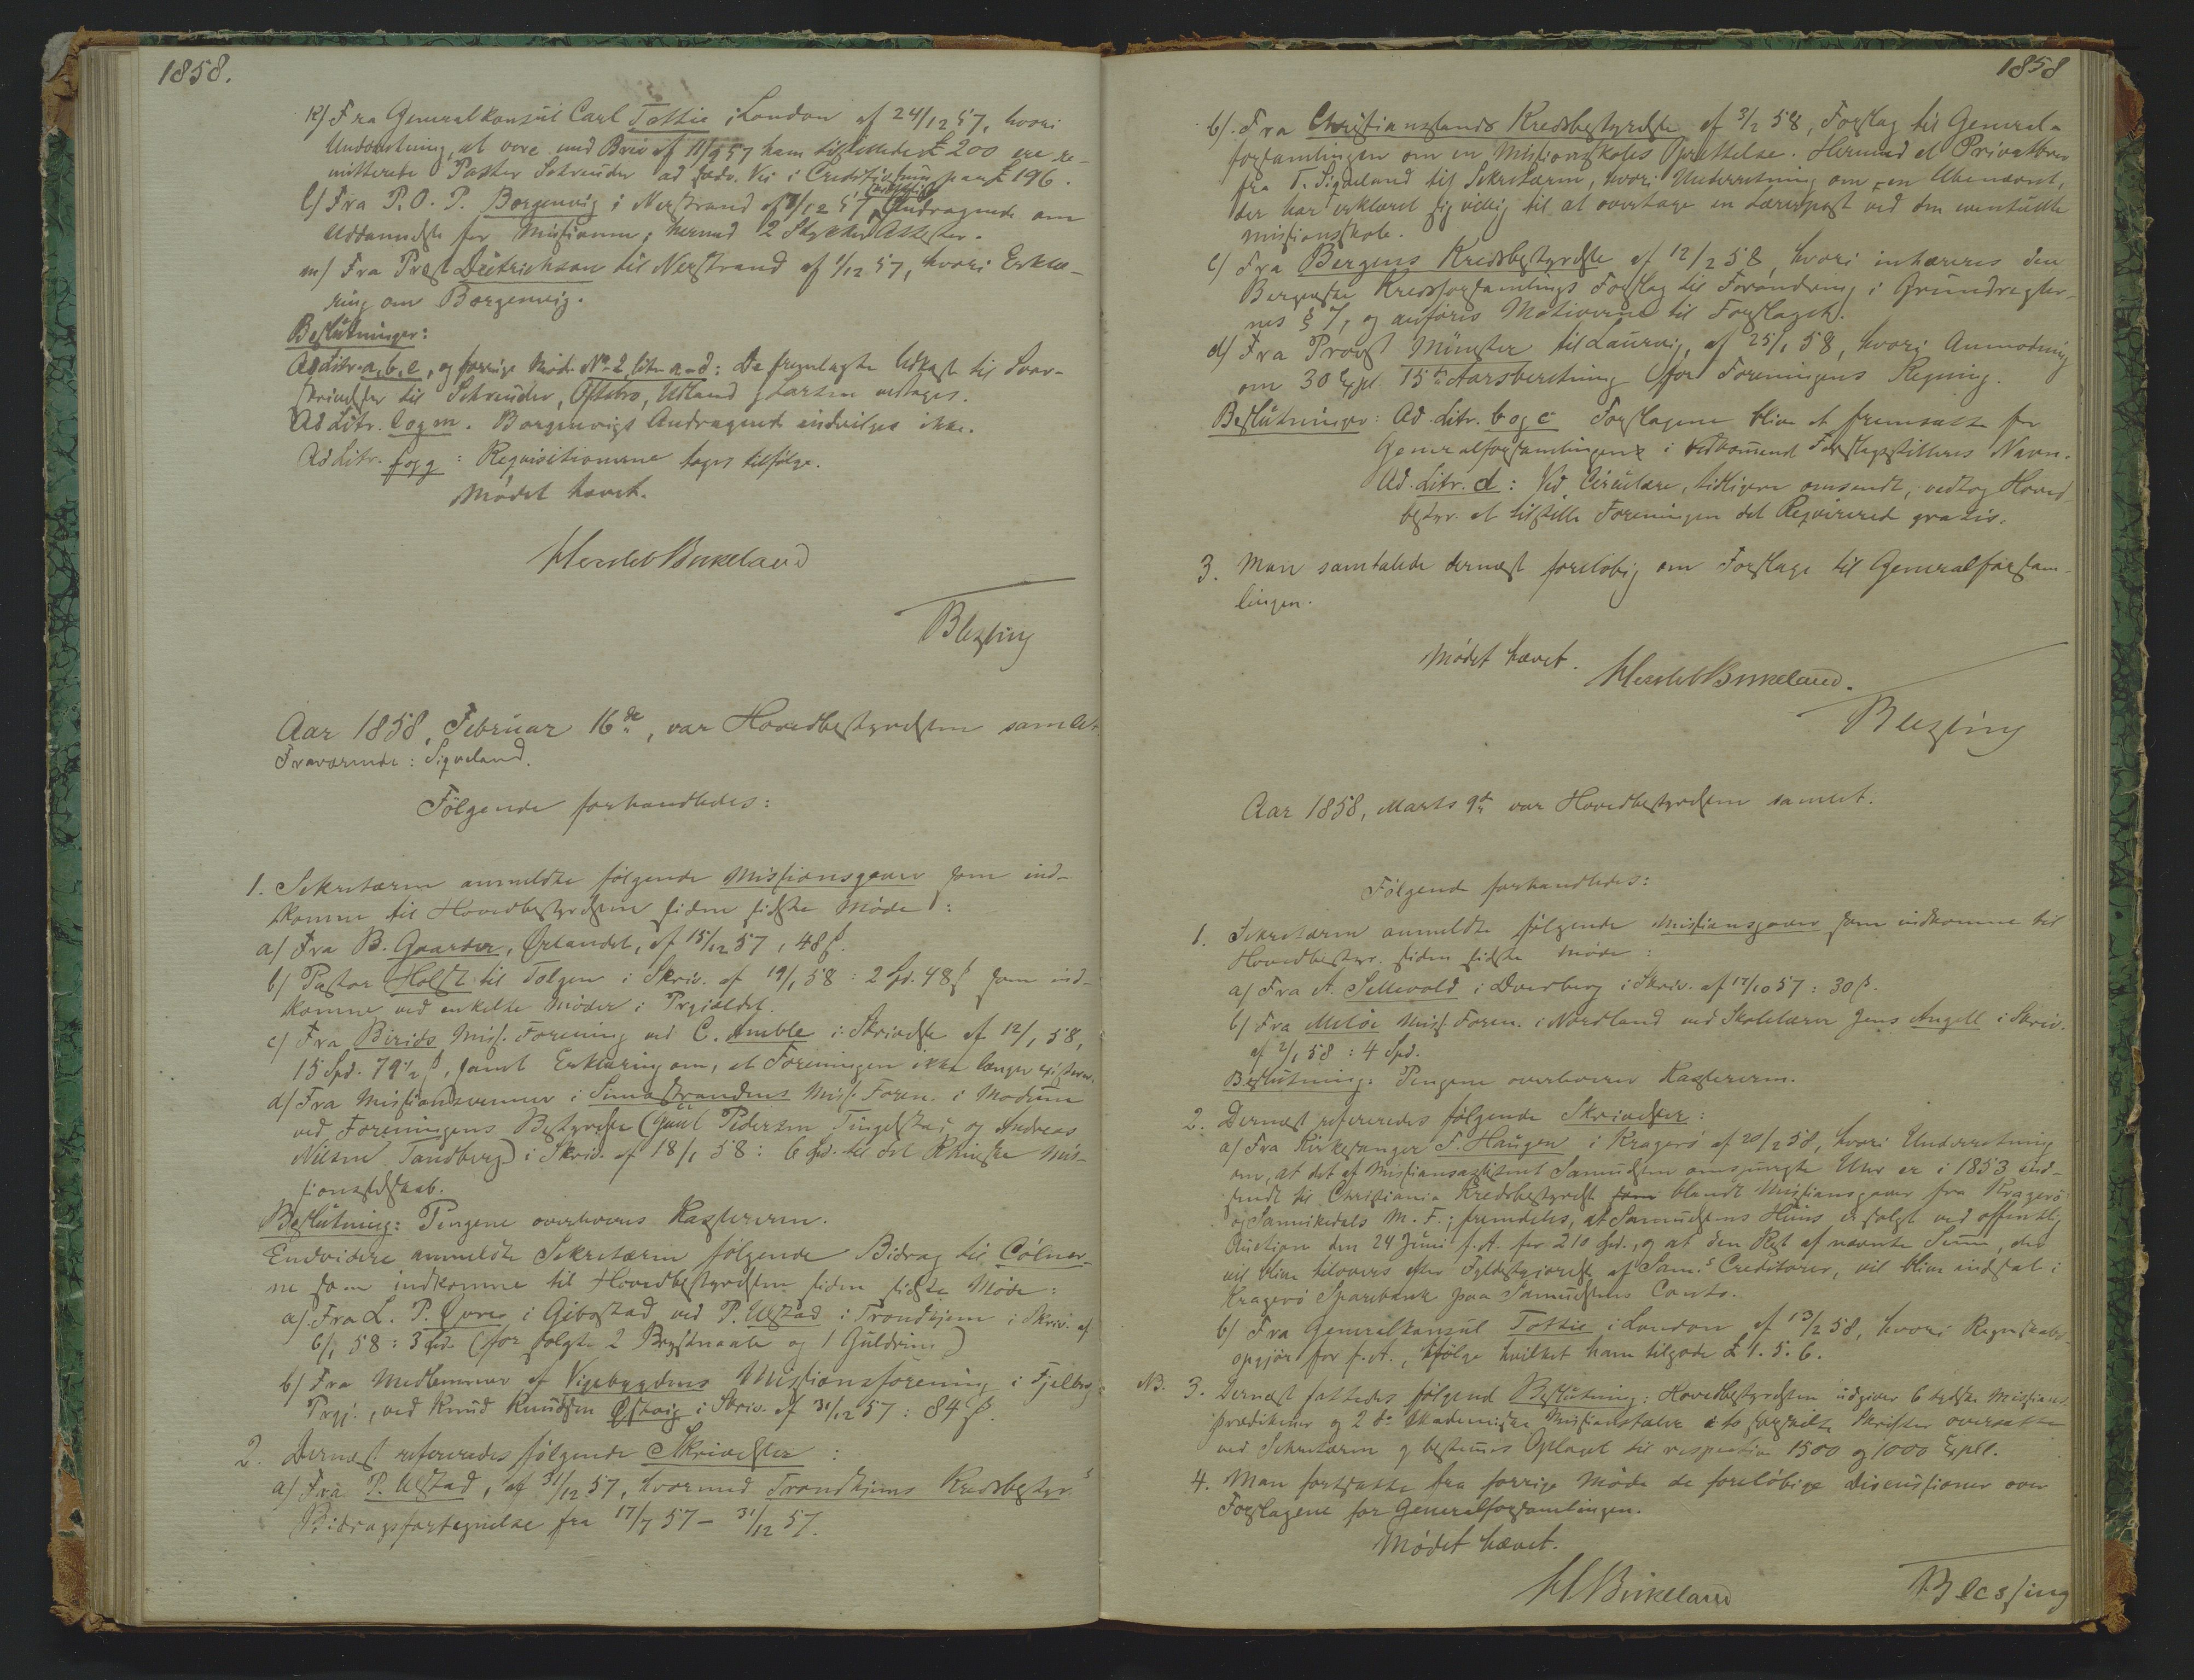 1858.
k) Fra Generalkonsul Carl Tottie i London af 24/12 57, hvori
Underretning, at vore med Brev af 11/9 57 ham tilstillede £ 200 ere re-
mitterede Pastor Schreuder ad sædv. Vei i Creditiv paa £ 196.
l) Fra P. O. P. Borgenvig i Nerstrand af 7/12 57, Andragende om
Uddannelse for Missionen; hermed 2 Stykker Attester.
m) Fra Præst Dietrichson til Nerstrand af 1/12 57, hvori Erklæ-
ring om Borgenvig.
Beslutninger:
Ad Litr. a, b, e, og forrige Møde No 2 Litr. a-d: De fremlagte Udkast til Svar-
skrivelser til Schreuder, Oftebro, Udland og Larsen vedtages.
Ad Litr. l og m. Borgenvigs Andragende indvilges ikke.
Ad Litr. f og g: Reqvisitionerne tages tilfølge.
Mødet hævet.
Hersleb Birkeland
Blessing
Aar 1858, Februar 16de, var Hovedbestyrelsen samlet.
Fraværende: Siqveland.
Følgende forhandledes:
1. Sekretæren anmeldte følgende Missionsgaver som ind-
komne til Hovedbestyrelsen siden sidste Møde:
a) Fra B. Gaarder, Ørlandet, af 15/12 57, 48 ß.
b) Pastor Holst til Tolgen i Skriv. af 19/1 58: 2 Spd. 48 ß som ind-
komne ved enkelte Møder i Prgjældet.
c) Fra Birids Miss. Forening ved C. Amble i Skrivelse af 12/1 58,
15 Spd. 79 1/2 ß, samt Erklæring om, at Foreningen ikke længer existerer.
d) Fra Missionsvenner i Simostrandens Miss. Foren. i Modum
ved Foreningens Bestyrelse (Paul Pedersen Tingelstad og Andreas
Nilsen Tandberg) i Skriv. af 18/1 58: 6 Spd. til det Rhinske Mis-
sionsselskab.
Beslutning: Pengene overleveres Kassereren.
Endvidere anmeldte Sekretæren følgende Bidrag til Cólner-
ne som indkomne til Hovedbestyrelsen siden sidste Møde:
a) Fra L. P. Qvree i Gibostad ved P. Ulstad i Trondhjem i Skriv. af
6/1 58: 3 Spd. (for solgte 2 Brystnaale og 1 Guldring)
b) Fra Medlemmer af Vigebygdens Missionsforening i Fjelberg
Prgj., ved Knud Knudsen Østvig i Skriv. af 31/12 57: 84 ß.
2. Dernæst refereredes følgende Skrivelser:
a) Fra P. Ulstad, af 31/12 57, hvormed Trondhjems Kredsbestyr.s
Bidragsfortegnelse fra 17/7 57 - 31/12 57.
1858
b). Fra Christianssands Kredsbestyrelse af 3/2 58, Forslag til General-
forsamlingen om en Missionsskoles Oprettelse. Hermed et Privatbrev
fra T. Siqveland til Sekretæren, hvori Underretning om en Ubenævnt,
der har erklæret sig villig til at overtage en Lærerpost ved den eventuelle
Missionsskole.
c) Fra Bergens Kredsbestyrelse af 12/2 58, hvori inhæreres den
Bergenske Kredsforsamlings Forslag til Forandring i Grundregler-
nes § 7, og anføres Motiverne til Forslaget.
d) Fra Provst Münster til Laurvig, af 25/1 58, hvori Anmodning
om 30 Expl. 15de Aarsberetning for Foreningens Regning.
Beslutninger: Ad Litr. b og c Forslagene blive at fremsætte for
Generalforsamlingen i vedkommende Forslagsstilleres Navn.
Ad. Litr. d: Ved Circulære, tidligere omsendt, vedtog Hoved-
bestyr. at tilstille Foreningen det Reqvirerede gratis.
3. Man samtalede dernæst foreløbig om Forslage til Generalforsam-
lingen.
Mødet hævet.
Hersleb Birkeland.
Blessing
Aar 1858, Marts 9de var Hovedbestyrelsen samlet.
Følgende forhandledes:
1. Sekretæren anmeldte følgende Missionsgaver som indkomne til
Hovedbestyr. siden sidste Møde:
a) Fra A. Sellevold i Dverberg i Skriv. af 17/10 57: 30 ß.
b) Fra Melöe Miss. Foren. i Nordland ved Skolelærer Jens Angell i Skriv.
af 2/1 58: 4 Spd.
Beslutning: Pengene overleveres Kassereren.
2. Dernæst refereredes følgende Skrivelser:
a) Fra Kirkesanger T. Haugen i Kragerö af 20/2 58, hvori Underretning
om, at det af Missionsassistent Samuelsen omspurgte Uhr er i 1853 ind-
sendt til Christiania Kredsbestyrelse blandt Missionsgaver fra Kragerö
og Sannikedals M. F.; fremdeles, at Samuelsens Huus er solgt ved offentlig
Auction den 24 Juni f. A. for 210 Spd., og at den Rest af nævnte Sum, der
vil blive tilovers efter Fyldestgjørelse af Sam.s Creditorer, vil blive indsat i
Kragerö Sparebank paa Samuelsens Conto.
b) Fra Generalkonsul Tottie i London af 13/2 58, hvori Regnskabs-
opgjør for f. A., ifølge hvilket ham tilgode £ 1. 5. 6.
NB. 3. Dernæst fattedes følgende Beslutning: Hovedbestyrelsen udgiver 6 tydske Missions-
prædikener og 2 do Akademiske Missionstaler i to særskilte Skrifter oversatte
ved Sekretæren og bestemmes Oplaget til respective 1500 og 1000 Expl.
4. Man fortsatte fra forrige Møde de foreløbige Discussioner over
Forslagene for Generalforsamlingen.
Mødet hævet.
H Birkeland
Blessing